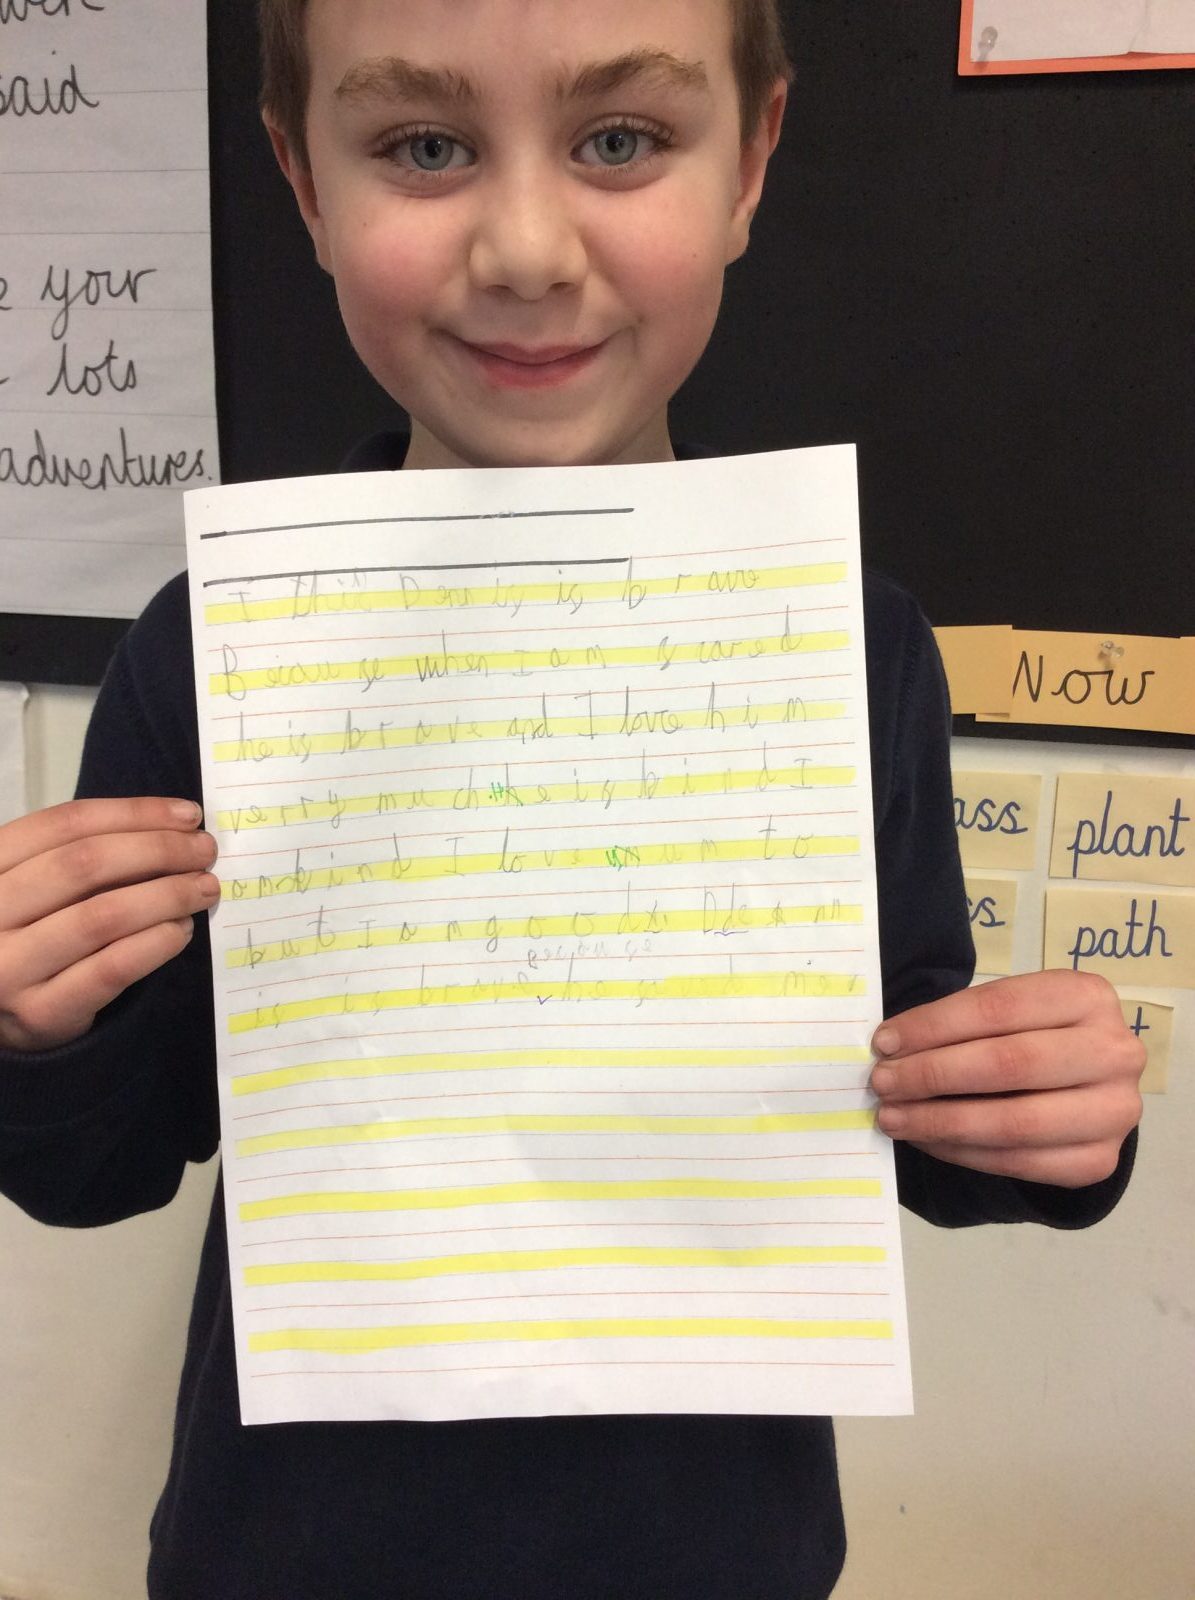 said
your
lots
adventures.
I think Dennis is brave
Because when I am scared
he is brave and I love him
verry much He is kind I
am kind I love mum to
but I am good. Dde nn
Because
is is brave he
Now
ass
plant
path